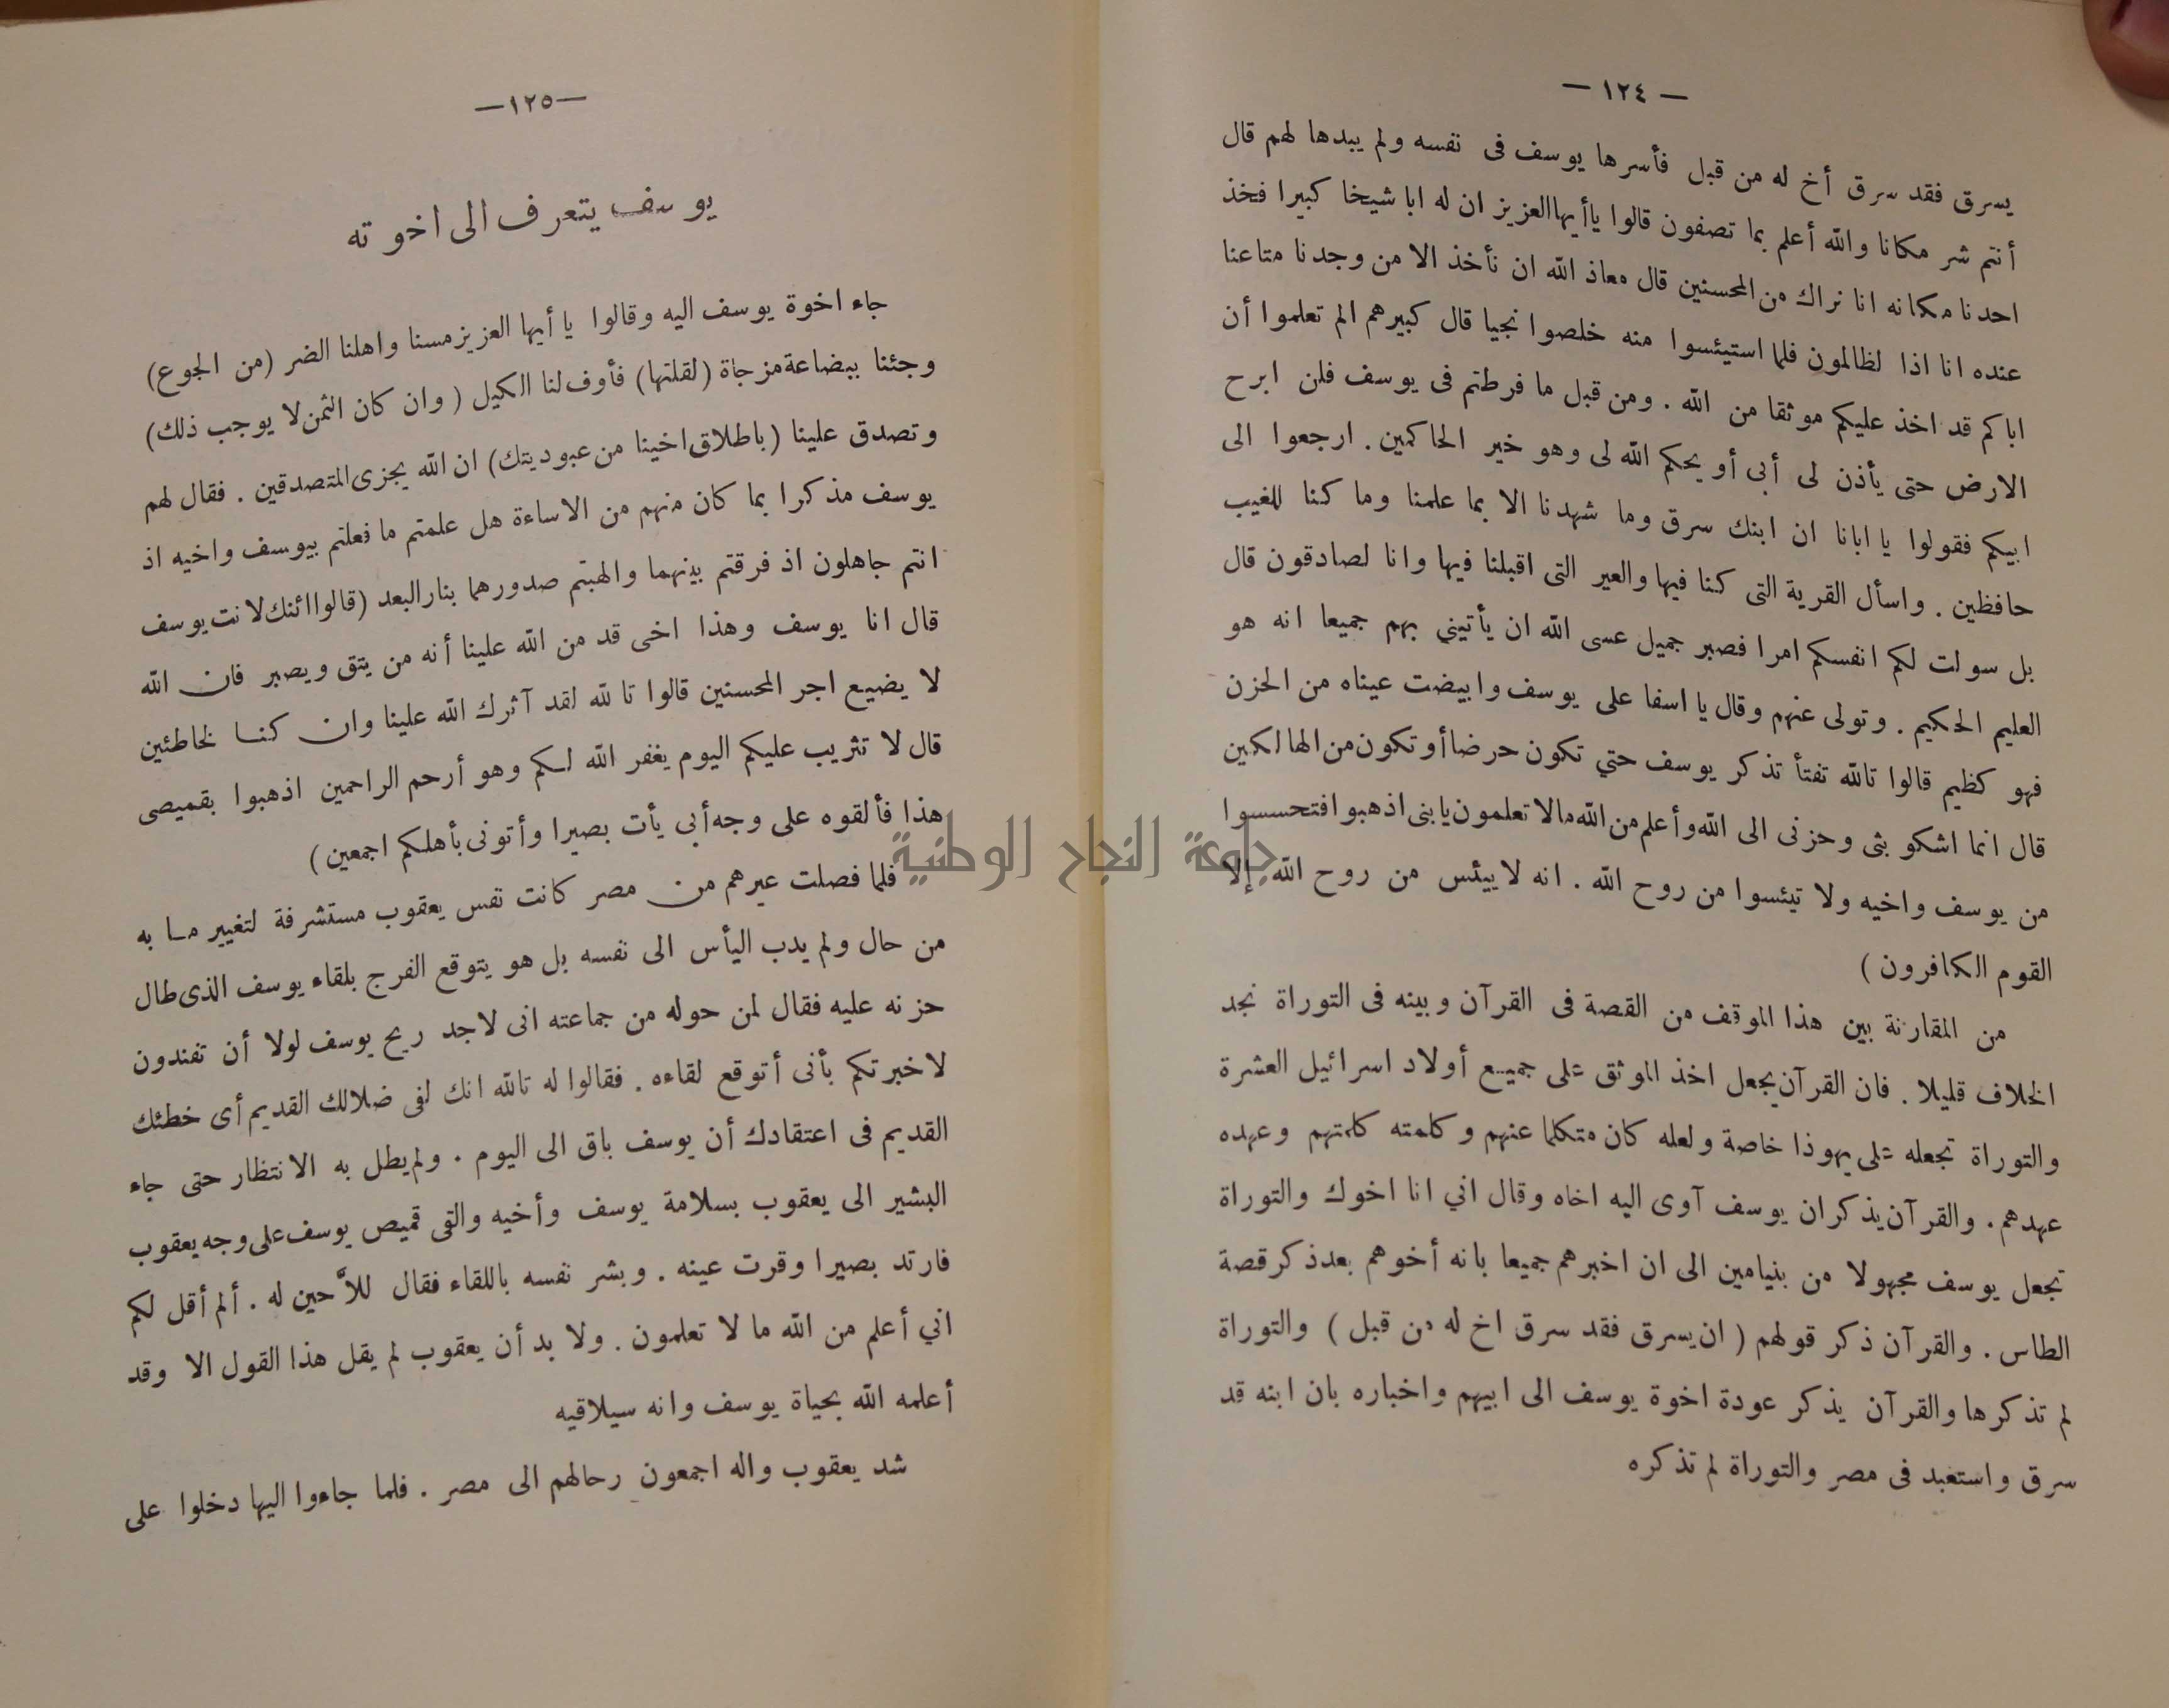 — ١٢٤ —
يسرق فقد سرق أخ له من قبل فأسرها يوسف فى نفسه ولم يبدها لهم قال
أنتم شر مكانا والله أعلم بما تصفون قالوا ياأيها العزيز ان له ابا شيخا كبيرا فخذ
احدنا مكانه انا نراك من المحسنين قال معاذ الله ان نأخذ الا من وجدنا متاعنا
عنده انا اذا لظالمون فلما استيئسوا منه خلصوا نجيا قال كبيرهم الم تعلموا أن
اباكم قد اخذ عليكم موثقا من الله . ومن قبل ما فرطتم فى يوسف فلن ابرح
الارض حتى يأذن لى أبى أو يحكم الله لى وهو خير الحاكمين . ارجعوا الى
ابيكم فقولوا يا ابانا ان ابنك سرق وما شهدنا الا بما علمنا وما كنا للغيب
حافظين . واسأل القرية التى كنا فيها والعير التى اقبلنا فيها وانا لصادقون قال
بل سولت لكم انفسكم امرا فصبر جميل عسى الله ان يأتيني بهم جميعا انه هو
العليم الحكيم . وتولى عنهم وقال يا اسفا على يوسف وابيضت عيناه من الحزن
فهو كظيم قالوا تالله تفتأ تذكر يوسف حتي تكون حرضا أو تكون من الهالكين
قال انما اشكو بثى وحزنى الى الله وأعلم من الله مالا تعلمون يابنى اذهبوا فتحسسوا
من يوسف واخيه ولا تيئسوا من روح الله . انه لا ييئس من روح الله إلا
القوم الكافرون )
من المقارنة بين هذا الموقف من القصة فى القرآن وبينه فى التوراة نجد
الخلاف قليلا . فان القرآن يجعل اخذ الموثق على جميع أولاد اسرائيل العشرة
والتوراة تجعله على يهوذا خاصة ولعله كان متكلما عنهم وكلمته كلمتهم وعهده
عهدهم . والقرآن يذكر ان يوسف آوى اليه اخاه وقال اني انا اخوك والتوراة
تجعل يوسف مجهولا من بنيامين الى ان اخبرهم جميعا بانه أخوهم بعد ذكر قصة
الطاس . والقرآن ذكر قولهم ( ان يسرق فقد سرق اخ له من قبل ) والتوراة
لم تذكرها والقرآن يذكر عودة اخوة يوسف الى ابيهم واخباره بان ابنه قد
سرق واستعبد فى مصر والتوراة لم تذكره
—١٢٥—
يوسف يتعرف الى اخوته
جاء اخوة يوسف اليه وقالوا يا أيها العزيز مسنا واهلنا الضر (من الجوع)
وجئنا ببضاعة مزجاة (لقلتها) فأوف لنا الكيل ( وان كان الثمن لا يوجب ذلك)
وتصدق علينا (باطلاق اخينا من عبوديتك) ان الله يجزى المتصدقين . فقال لهم
يوسف مذكرا بما كان منهم من الاساءة هل علمتم ما فعلتم بيوسف واخيه اذ
انتم جاهلون اذ فرقتم بينهما والهبتم صدورهما بنار البعد (قالوا ائنك لانت يوسف
قال انا يوسف وهذا اخى قد من الله علينا أنه من يتق ويصبر فان الله
لا يضيع اجر المحسنين قالوا تالله لقد آثرك الله علينا وان كنا لخاطئين
قال لا تثريب عليكم اليوم يغفر الله لكم وهو أرحم الراحمين اذهبوا بقميصى
هذا فألقوه على وجه أبي يأت بصيرا وأتونى بأهلكم اجمعين)
فلما فصلت عيرهم من مصر كانت نفس يعقوب مستشرفة لتغيير ما به
من حال ولم يدب اليأس الى نفسه بل هو يتوقع الفرج بلقاء يوسف الذى طال
حزنه عليه فقال لمن حوله من جماعته انى لاجد ريح يوسف لولا أن تفندون
لاخبرتكم بأنى أتوقع لقاءه . فقالوا له تالله انك لفى ضلالك القديم أى خطئك
القديم فى اعتقادك أن يوسف باق الى اليوم . ولم يطل به الانتظار حتى جاء
البشير الى يعقوب بسلامة يوسف وأخيه والقى قميص يوسف على وجه يعقوب
فارتد بصيرا وقرت عينه . وبشر نفسه باللقاء فقال للاَّحين له . ألم أقل لكم
اني أعلم من الله ما لا تعلمون . ولا بد أن يعقوب لم يقل هذا القول الا وقد
أعلمه الله بحياة يوسف وانه سيلاقيه
شد يعقوب واله اجمعون رحالهم الى مصر . فلما جاءوا اليها دخلوا على
جامعة النجاح الوطنية